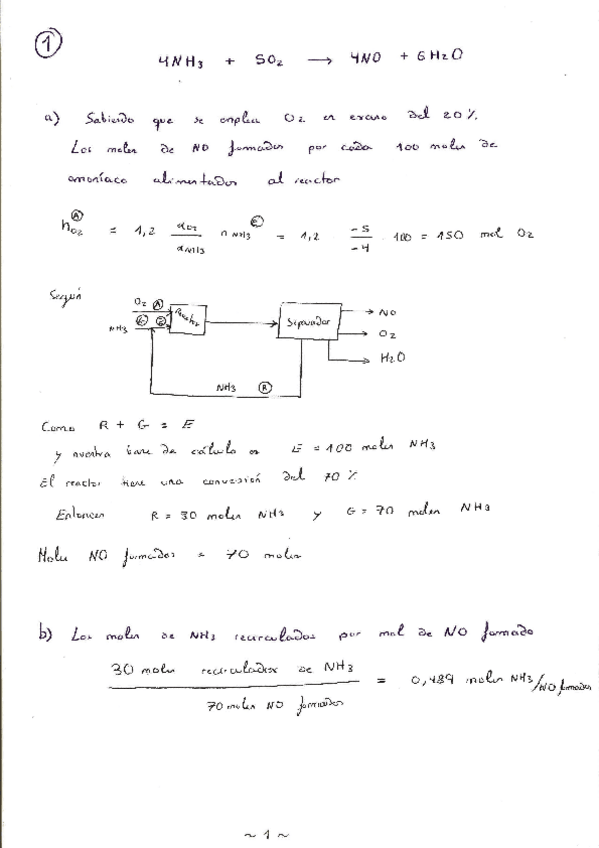 1
4NH3 + 5O2 → 4NO + 6H2O
a) Sabiendo que se emplea O2 en exceso del 20%.
Los moles de NO formados por cada 100 moles de
amoníaco alimentados al reactor
nO2 (A) = 1,2 αO2/αNH3 nNH3 (E) = 1,2 -5/-4 · 100 = 150 mol O2
Según
O2 (A)
NH3 (G) (E)
Reactor
Separador
NO
O2
H2O
NH3 (R)
Como R + G = E
y nuestra base de cálculo es E = 100 moles NH3
El reactor tiene una conversión del 70%
Entonces R = 30 moles NH3 y G = 70 moles NH3
Moles NO formados = 70 moles
b) Los moles de NH3 recirculados por mol de NO formado
30 moles recirculados de NH3 / 70 moles NO formados = 0,489 moles NH3/NO formados
~ 1 ~